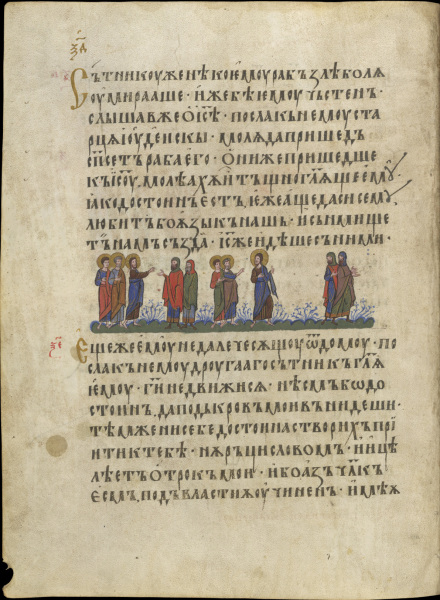 Сътникоу же нѣкоемоу рабъ злѣ болѧ
оумирааше · иже бѣ емоу чьстенъ ·
слышавже ѡ іс҃ѣ · посла къ немоу ста
рцѧ іоудеискы · молѧ да пришедъ
сп҃сетъ раба его · ѡни же пришедше
къ іс҃оу, молѣахѫ и тъщно гл҃ѧще емꙋ,
ꙗко достоинъ естъ, еже аще даси семꙋ,
любитъ бо ѧзыкъ нашь · и сънмище
тъ намъ създа · іс҃ же идѣше съ ними ·
Еще же емоу не далече сѫщоу ѿ домоу · по
сла къ немоу дроугы сътникъ гл҃ѧ
емоу · г҃и не движисѧ · нѣсмъ бѡ до
стоинъ, да подъ кровъ мои вънидеши ·
тѣмже ни себе достоина сътворихъ прі
ити къ тебѣ · нѫ рьци словомъ · и ицѣ
лѣетъ отрокъ мои · ибо азъ чл҃къ
есмъ, подъ властиѫ оучиненъ · имѣѧ